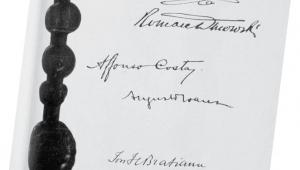 Roman Dmowski
Affonso Costa
Augusto Soares
Ion I C Bratianu